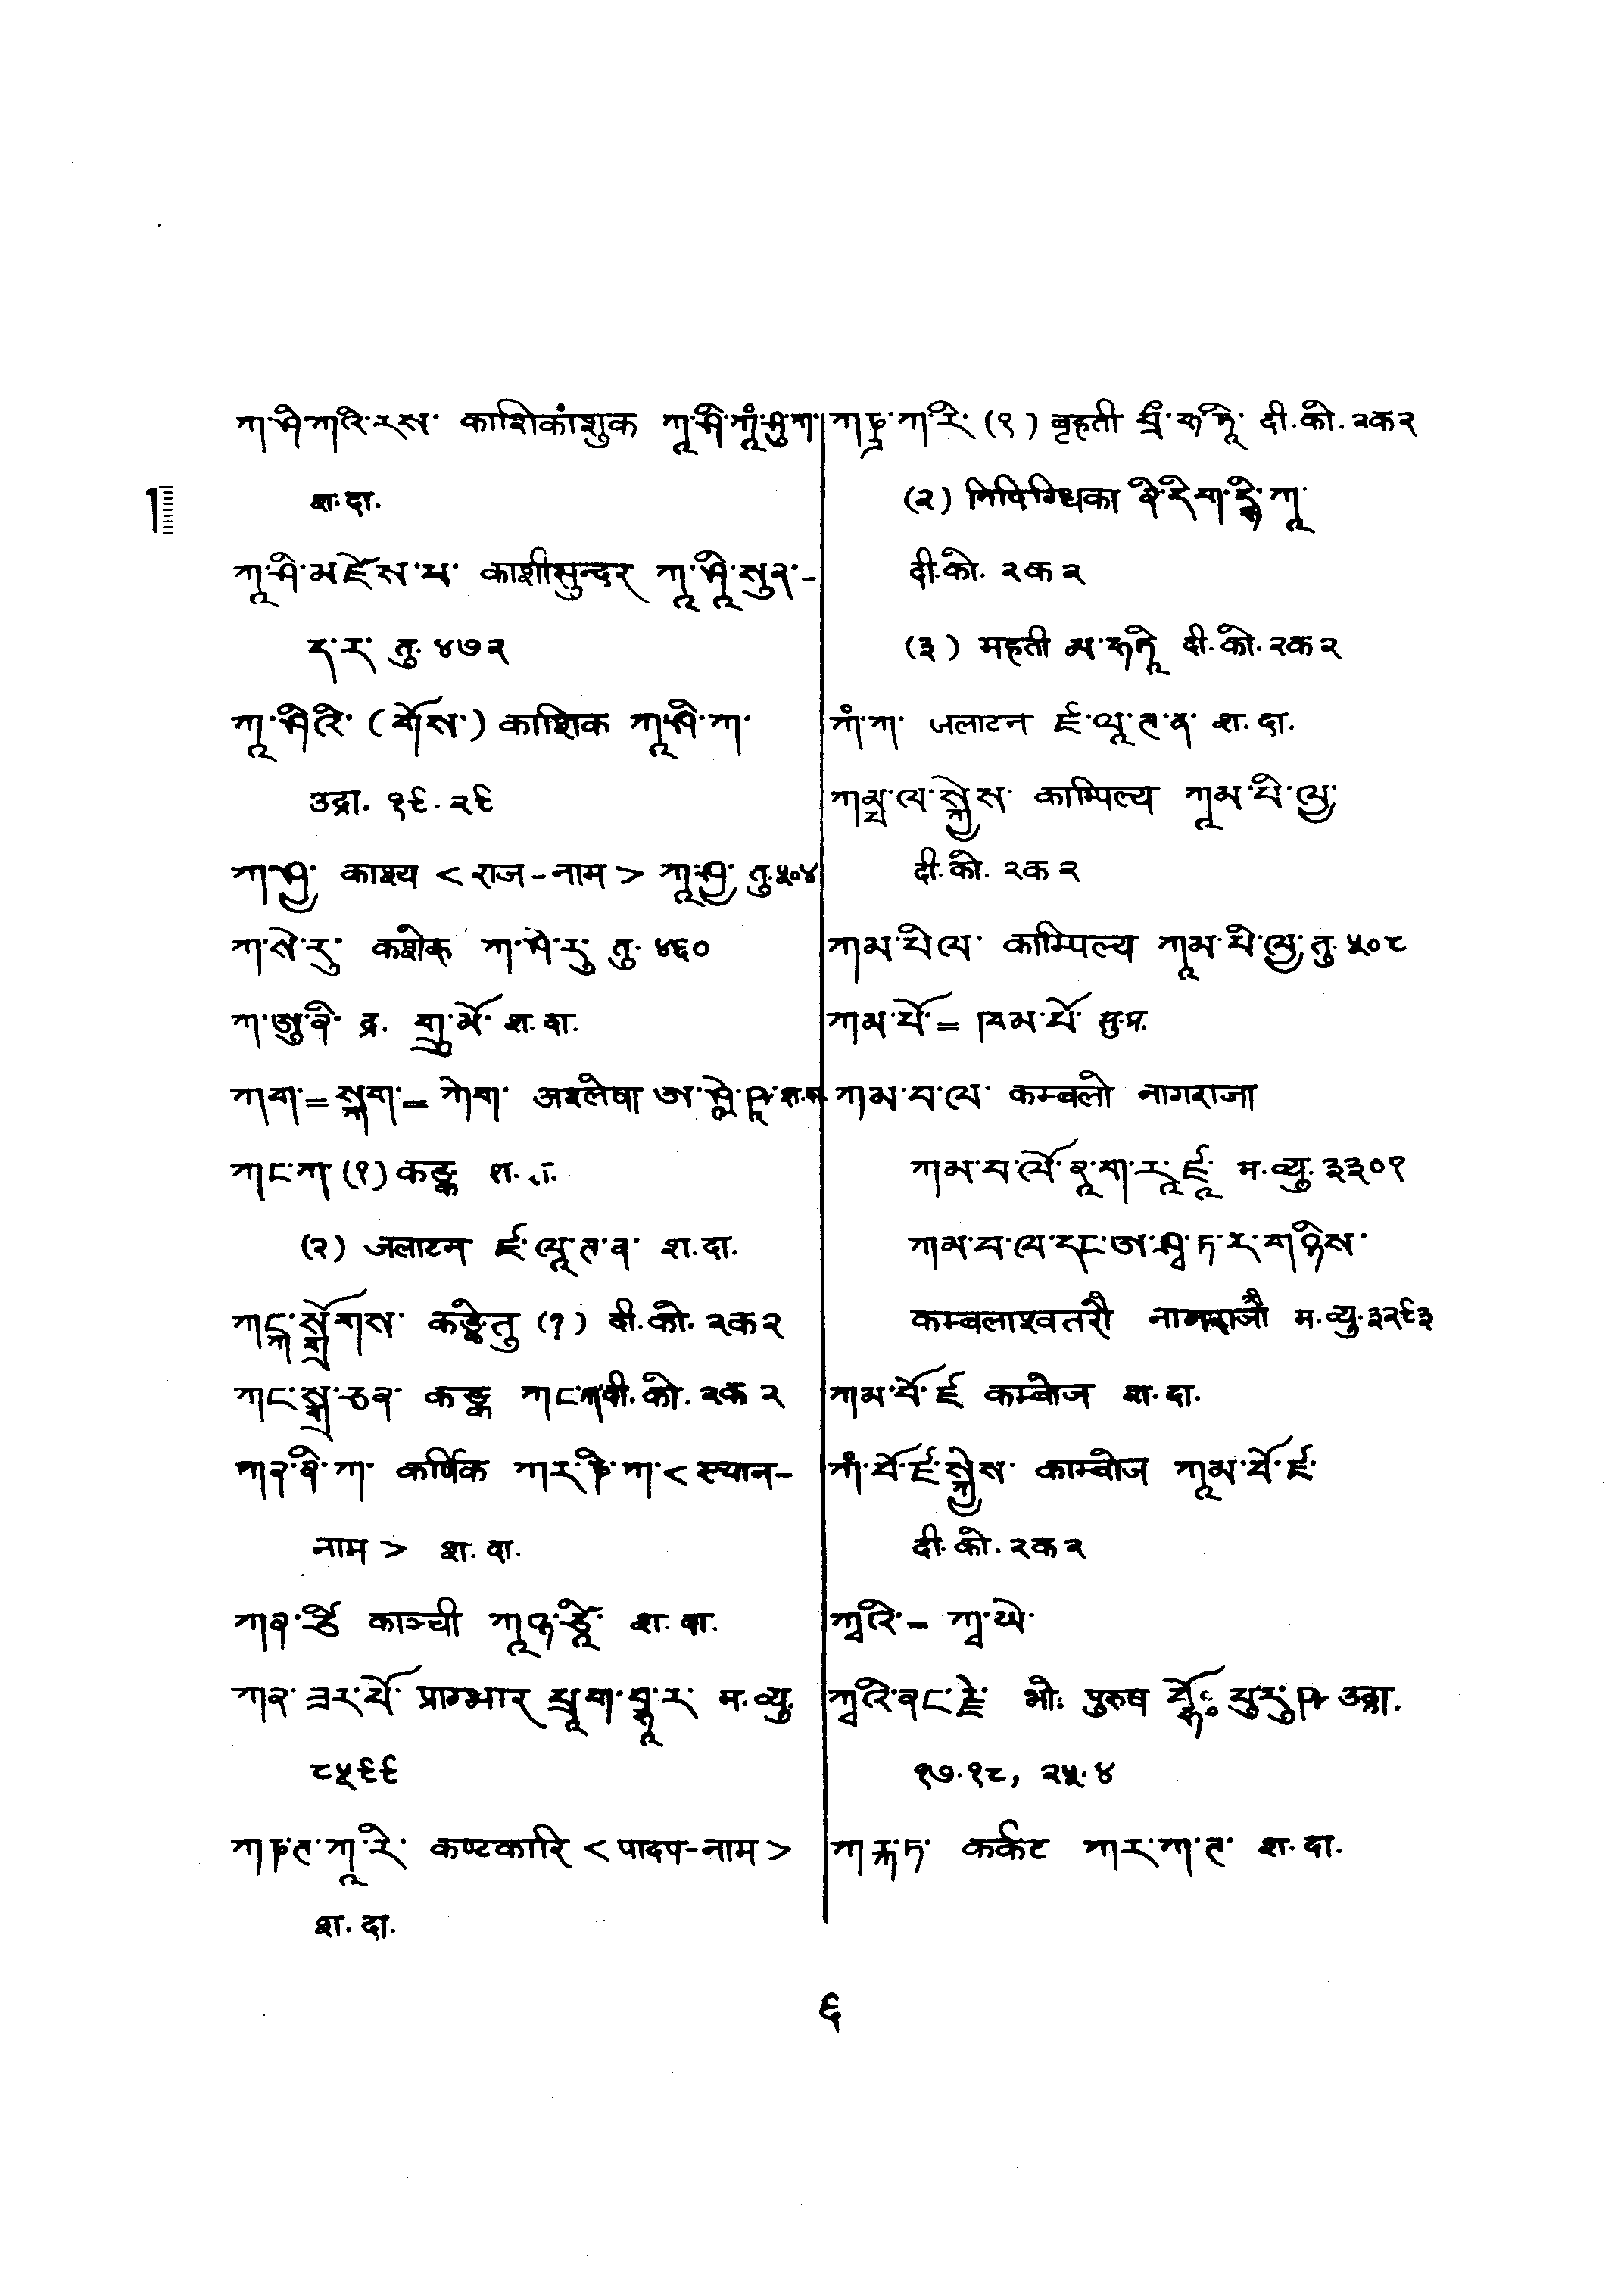 ཀ་ཤི་ཀའི་རས་ काशिकांशुक ཀཱ་ཤི་ཀཱཾ་ཤུ་ཀ་
श.दा.
ཀཱ་ཤི་མཛེས་པ་ काशीसुन्दर ཀཱ་ཤཱི་སུན་-
ད་ར་ तु. ४७२
ཀཱ་ཤིའི་ (གོས་) काशिक ཀཱ་ཤི་ཀ་
उद्रा. १९.२९
ཀ་ཤྱ་ काश्य < राज-नाम > ཀཱ་ཤྱ་ तु.५०४
ཀ་སེ་རུ་ कशेरू ཀ་ཤེ་རུ་ तु. ४६०
ཀ་ཨུ་ནི་ द्र. གྲུ་མོ་ श.दा.
ཀག་=སྐག་=ཀེག་ अश्लेषा ཨ་ཤླེ་ཥཱ་
ཀང་ཀ་ (१) कङ्क
(२) जलाटन ཛ་ལཱ་ཊ་ན་ श.दा.
ཀངྐ་སྒྲོགས་ कङ्केतु (१) दी.को. २क २
ཀང་སྒྲ་ཅན་ कङ्क ཀང་ཀ་ दी.को. २क २
ཀན་ནི་ཀ་ कर्णिक ཀར་ཎི་ཀ་ < स्थान-
नाम > श.दा.
ཀན་ཙི་ काञ्ची ཀཱཉ་ཙཱི་ श.दा.
ཀན་ཟར་པོ་ प्राग्भार པྲཱག་བྷཱ་ར་ म.व्यु.
८५९९
ཀཎ་ཊ་ཀཱ་རི་ कण्टकारि < पादप-नाम >
श.दा.
ཀཎྚ་ཀ་རི་ (१) बृहती བྲྀ་ཧ་ཏཱི་ दी.को. २क २
(२) निदिग्धिका ནི་དི་ག་དྷི་ཀཱ
दी.को. २क २
(३) महती མ་ཧ་ཏཱི་ दी.को. २क २
ཀཾ་ཀ་ जलाटन ཛ་ལཱ་ཊ་ན་ श.दा.
ཀམྤ་ལ་སྐྱེས་ काम्पिल्य ཀཱམ་པི་ལྱ་
दी.को. २क २
ཀམ་པིལ་ काम्पिल्य ཀཱམ་པི་ལྱ་ तु. ५०८
ཀམ་པོ་=ཁམ་པོ་ सु.प्र.
ཀམ་བ་ལེ་ कम्बलो नागराजा
ཀམ་བ་ལོ་ནཱ་ག་རཱ་ཛཱ་ म.व्यु. ३३०१
ཀམ་བ་ལ་དང་ཨ་ཤྭ་ཏ་ར་གཉིས་
कम्बलाश्वतरौ नागराजौ म.व्यु.३२९३
ཀམ་པོ་ཛ कम्बोज श.दा.
ཀཾ་བོ་ཛ་སྐྱེས་ काम्बोज ཀཱམ་བོ་ཛ་
दी.को. २क २
ཀྭའི་=ཀྭ་ཡེ་
ཀྭའི་ནང་རྗེ་ भोः पुरुष བྷོཿ པུ་རུ་ཥ་ उद्रा.
१७.१८, २५.४
ཀརྐ་ཏ་ कर्कट ཀར་ཀ་ཊ་ श.दा.
६